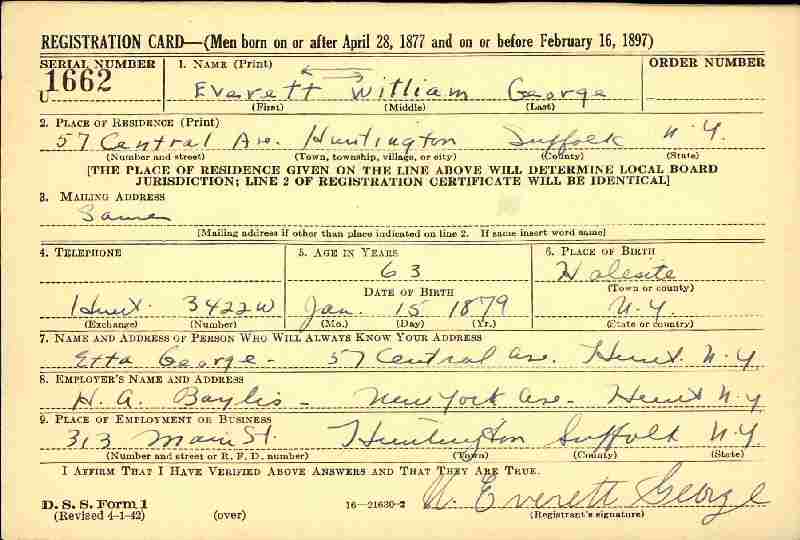 REGISTRATION CARD—(Men born on or after April 28, 1877 and on or before February 16, 1897)
SERIAL NUMBER 1. NAME (Print) ORDER NUMBER
U 1662 Everett William George
(First) (Middle) (Last)
2. PLACE OF RESIDENCE (Print)
57 Central Av. Huntington Suffolk N.Y.
(Number and street) (Town, township, village, or city) (County) (State)
[THE PLACE OF RESIDENCE GIVEN ON THE LINE ABOVE WILL DETERMINE LOCAL BOARD
JURISDICTION; LINE 2 OF REGISTRATION CERTIFICATE WILL BE IDENTICAL]
3. MAILING ADDRESS
Same
[Mailing address if other than place indicated on line 2. If same insert word same]
4. TELEPHONE 5. AGE IN YEARS 6. PLACE OF BIRTH
63 Halesite
DATE OF BIRTH (Town or county)
Hunt. 3422W Jan. 15 1879 N.Y.
(Exchange) (Number) (Mo.) (Day) (Yr.) (State or country)
7. NAME AND ADDRESS OF PERSON WHO WILL ALWAYS KNOW YOUR ADDRESS
Etta George - 57 Central Ave. Hunt. N.Y.
8. EMPLOYER'S NAME AND ADDRESS
H. A. Baylis - New York Ave - Hunt N.Y.
9. PLACE OF EMPLOYMENT OR BUSINESS
313 Main St. Huntington Suffolk N.Y.
(Number and street or R. F. D. number) (Town) (County) (State)
I AFFIRM THAT I HAVE VERIFIED ABOVE ANSWERS AND THAT THEY ARE TRUE.
D. S. S. Form 1 W. Everett George
(Revised 4-1-42) (over) 16—21630-2 (Registrant's signature)